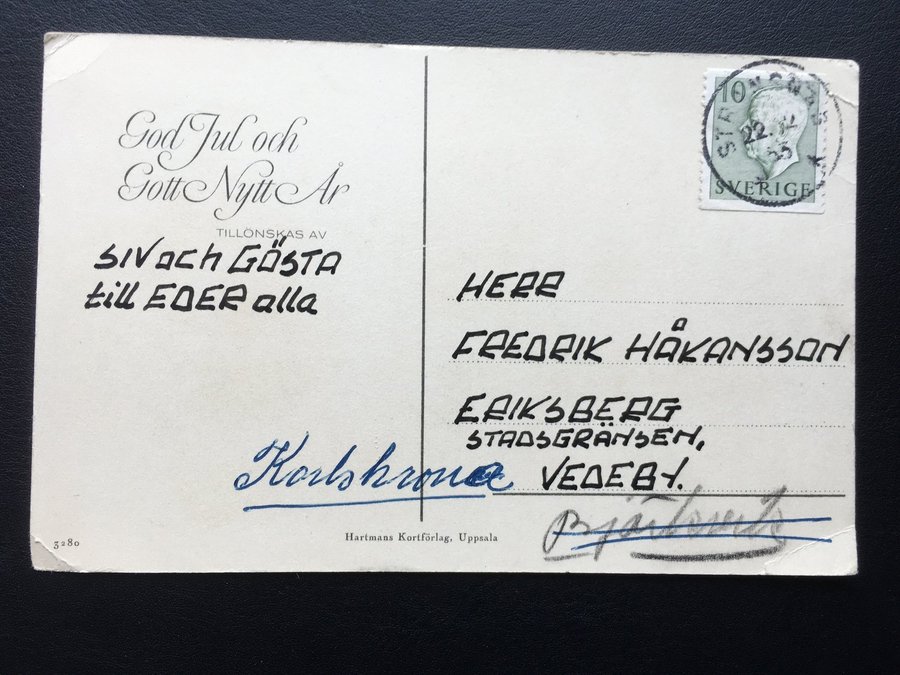 God Jul och
Gott Nytt År
TILLÖNSKAS AV
SIV och GÖSTA
till EDER alla
10
SVERIGE
22.12
HERR
FREDRIK HÅKANSSON
ERIKSBERG
STADSGRÄNSEN,
VEDEBY.
Karlskrona
3280
Hartmans Kortförlag, Uppsala